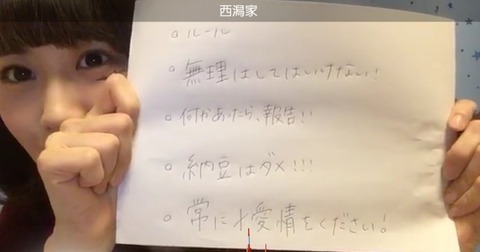 西潟家
○ルール
○無理はしてはいけない!
○何かあったら、報告!!
○納豆はダメ!!!
○常に愛情をください!